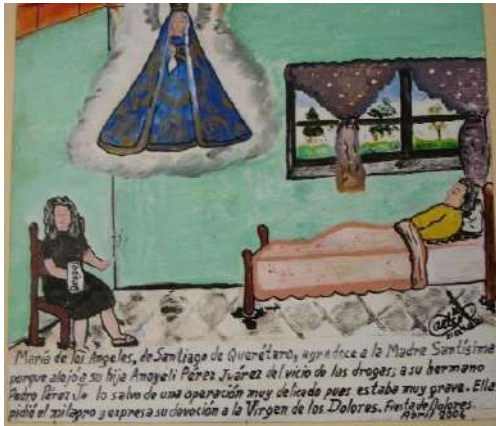 Drogas
María de los Angeles, de Santiago de Querétaro, agradece a la Madre Santísima
porque alejó a su hija Anayeli Pérez Juárez del vicio de las drogas; a su hermano
Pedro Pérez J. lo salvo de una operación muy delicada pues estaba muy grave. Ella
pidió el milagro y expresa su devoción a la Virgen de los Dolores. Fiesta de Dolores.
Abril 2006